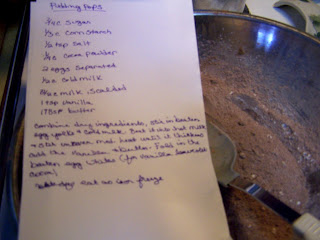 Pudding Pops
3/4c sugar
1/3c Cornstarch
1/4 tsp Salt
1/4c Cocoa powder
2 eggs separated
1/2c cold milk
milk scalded
1 tsp Vanilla
1 TBSP butter
Combine dry ingredients, stir in beaten
egg yolks + cold milk. Beat it into hot milk
+ stir over med heat until it thickens
add the vanilla + butter. Fold in the
beaten egg whites (for vanilla
cocoa)
eat or freeze